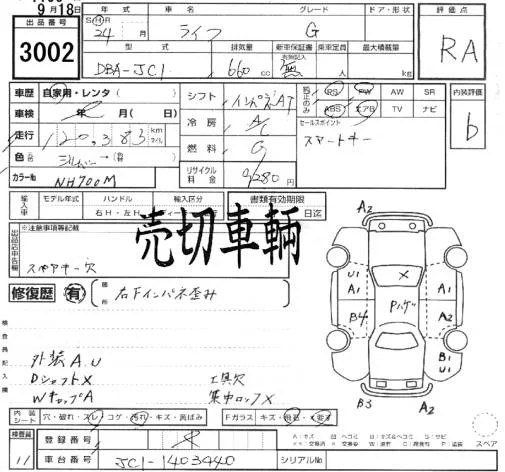 9月18日
出品番号
3002
年式 車名 グレード ドア・形状
S・H・R
24 月 ライフ G
型式 排気量 新車保証書 乗車定員 最大積載量
DBA-JC1 660 cc 無 人 kg
評価点
RA
車歴 自家用・レンタ( )
車検 年(月)(日)
走行 120,383 km マイル
色 シルバー
カラー№ NH700M
シフト インパネAT
冷房 A/C
燃料 G
リサイクル料金 9,280 円
純正のみ
RS PW AW SR
ABS エアB TV ナビ
セールスポイント
スマートキー
内装評価
b
輸入車 モデル年式 ハンドル 輸入区分 書類有効期限
右H・左H 日迄
出品店申告欄
※注意事項等記載
スペアキー欠
売切車輌
修復歴 有 箇所 右Fインパネ歪み
検査員記入欄
外装A.U
DシャフトX
WキャップA
工具欠
集中ロックX
A2
U1 A1 X A1
B4 Pハゲ A2
B1 U1
B3 A2
スペア
内装シート 穴・破れ・スレ・コゲ・汚れ・キズ・黄ばみ Fガラス キズ
検査員
11
登録番号
車台番号 JC1-1403440 シリアル№